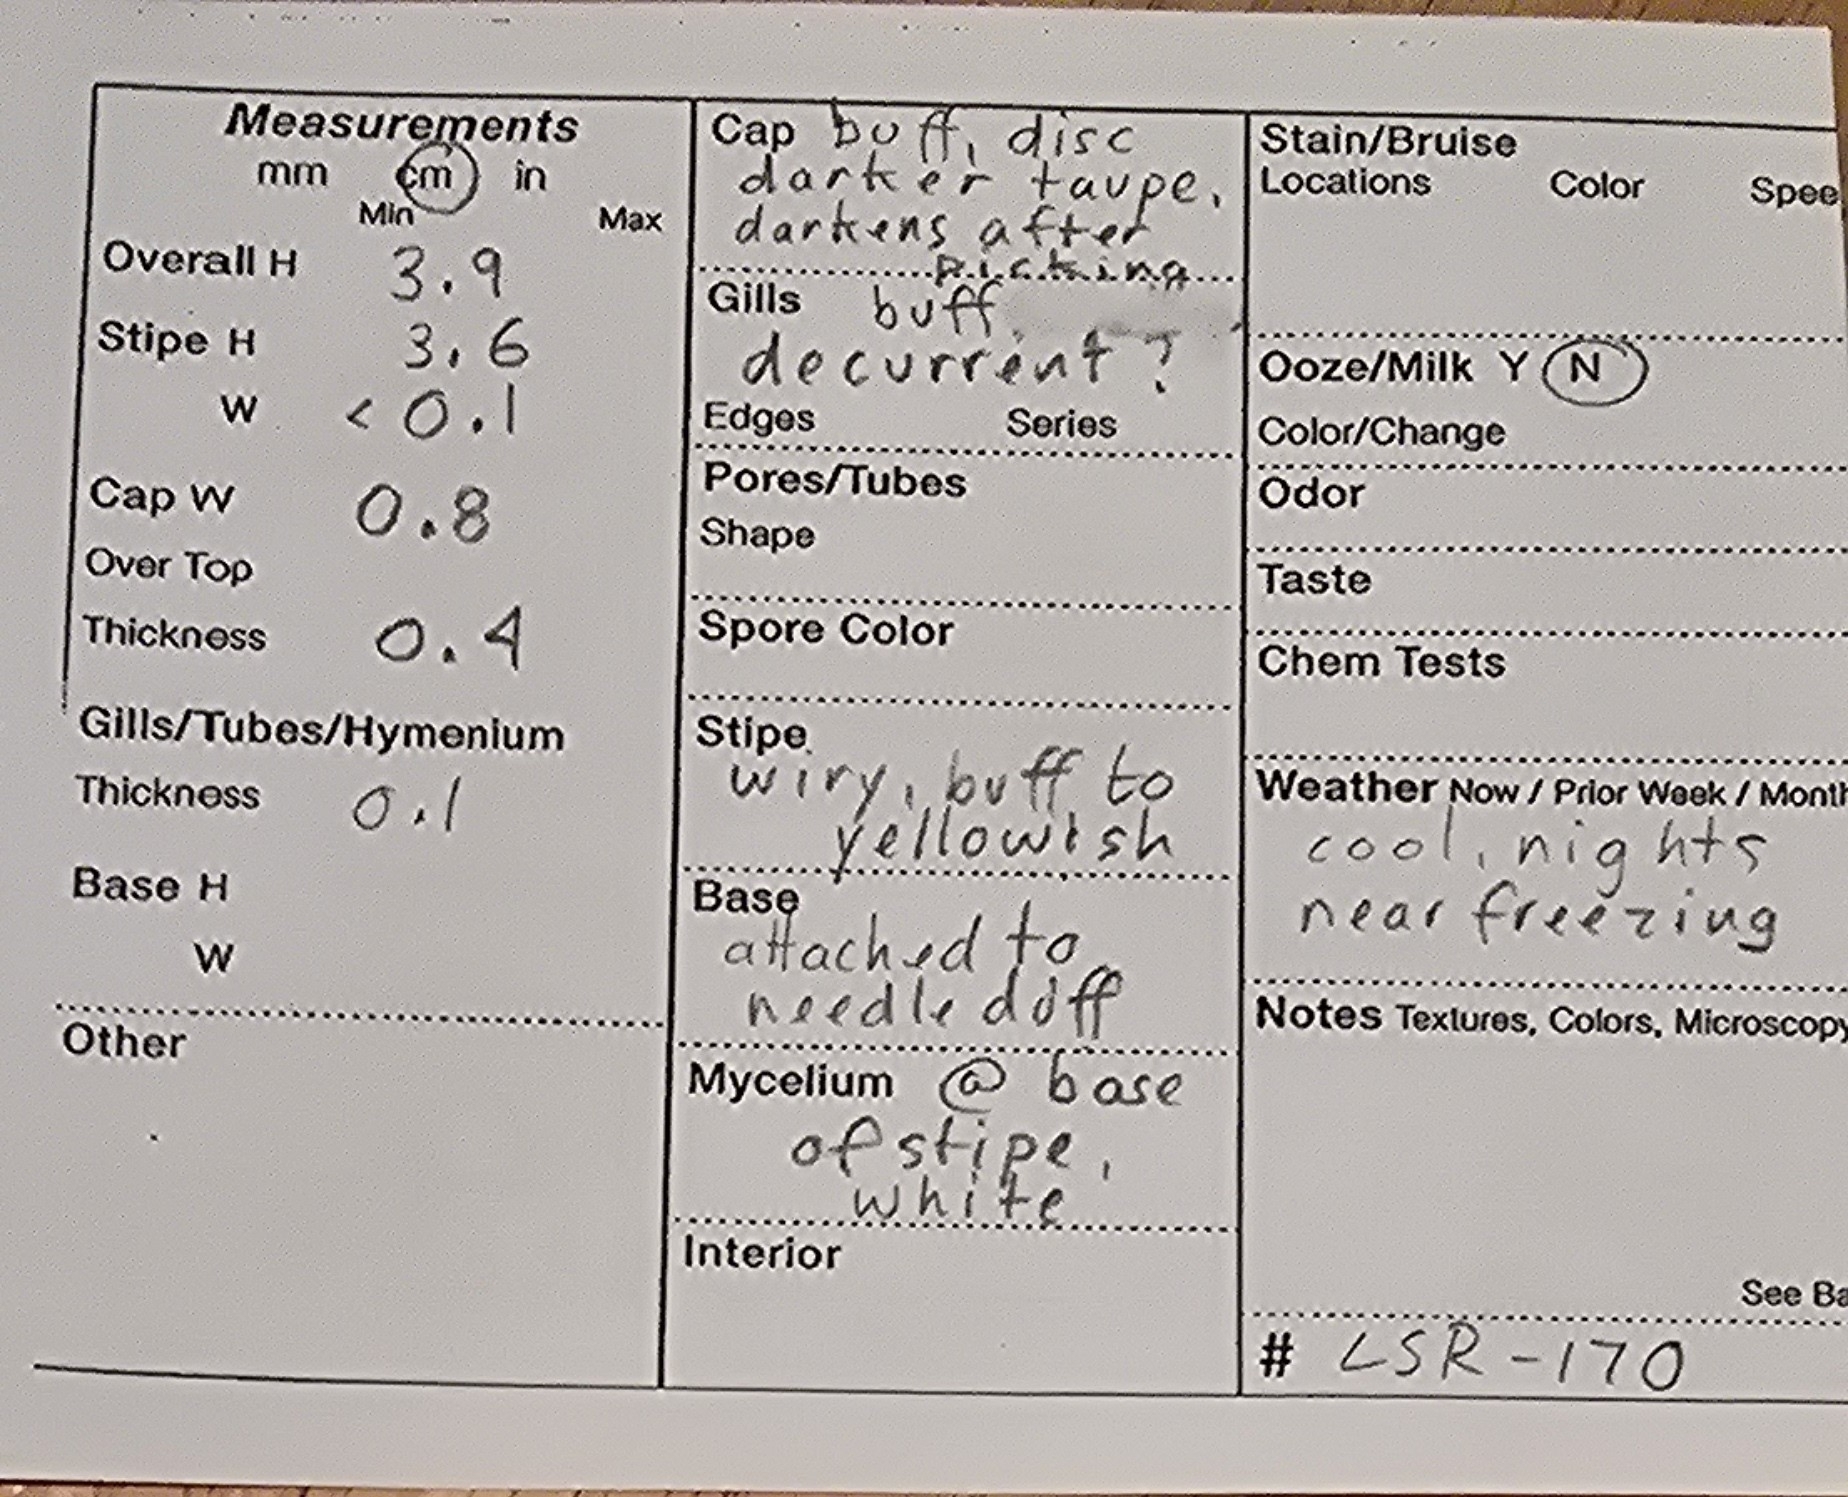 Measurements
mm cm in
Min Max
Overall H 3.9
Stipe H 3.6
W < 0.1
Cap W 0.8
Over Top
Thickness 0.4
Gills/Tubes/Hymenium
Thickness 0.1
Base H
W
Other
Cap buff, disc
darker taupe,
darkens after
picking
Gills buff
decurrent?
Edges Series
Pores/Tubes
Shape
Spore Color
Stipe
wiry, buff to
yellowish
Base
attached to
needle duff
Mycelium @ base
of stipe,
white
Interior
Stain/Bruise
Locations Color Spee
Ooze/Milk Y N
Color/Change
Odor
Taste
Chem Tests
Weather Now / Prior Week / Month
cool, nights
near freezing
Notes Textures, Colors, Microscopy
See Ba
# LSR-170